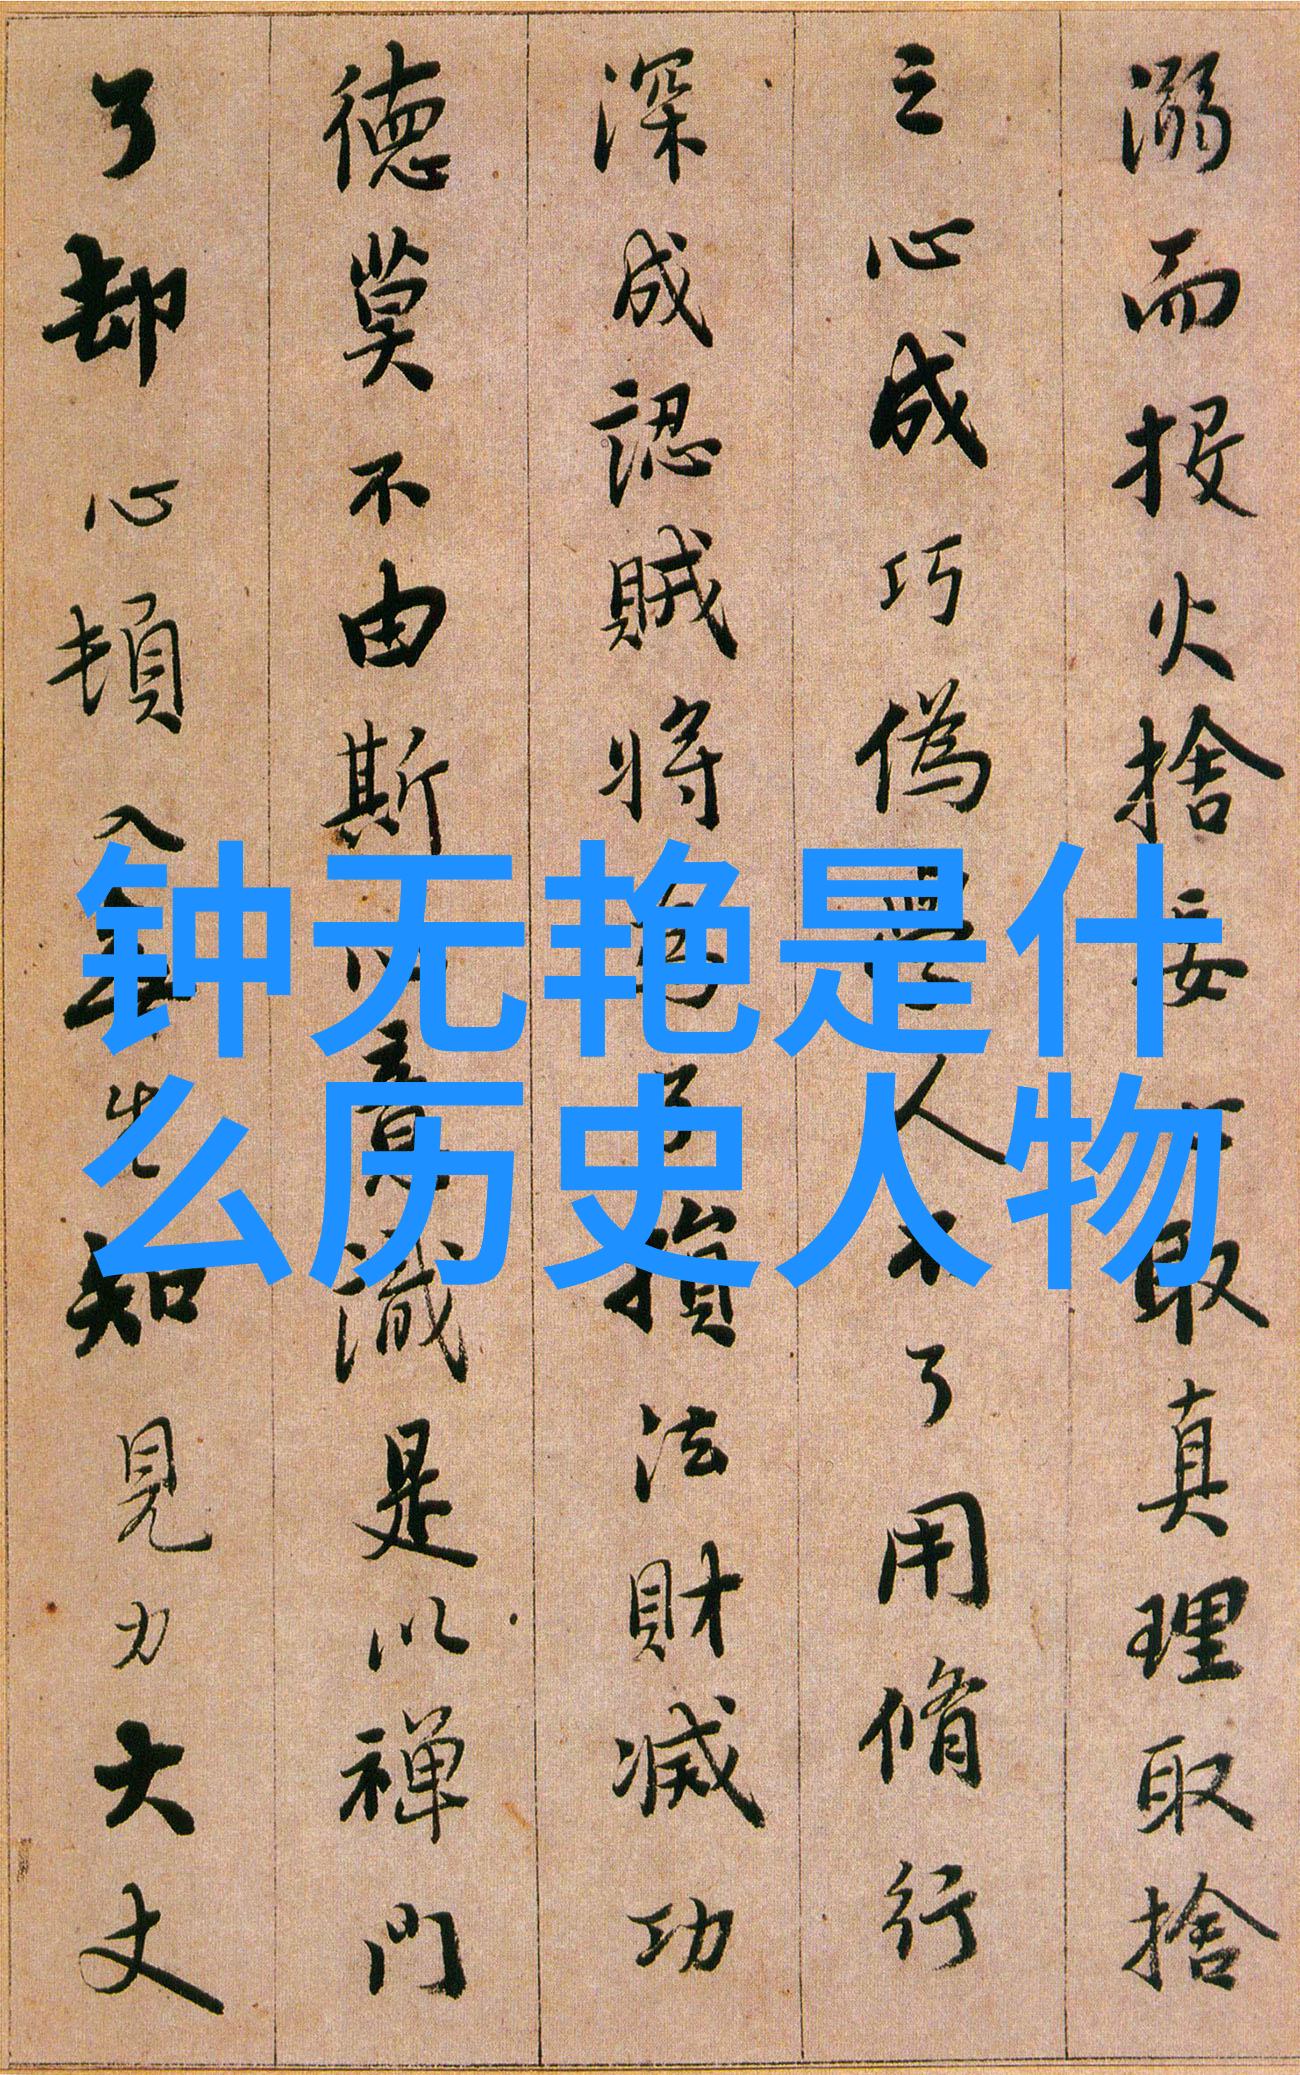 钟无艳是什
么历史人物
溺而投火捨妄心取真理取捨
之心成巧偽學人不了用脩行
深成認賊將為子損法財滅功
德莫不由斯心意識是以禪門
了却心頓入無生知見力大丈